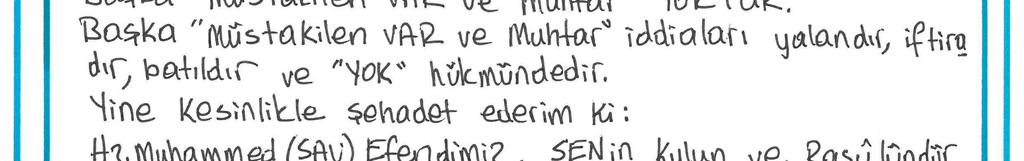 Başka "Müstakilen VAR ve Muhtar" YOKTUR.
Başka "Müstakilen VAR ve Muhtar" iddiaları yalandır, iftira
dır, batıldır ve "YOK" hükmündedir.
Yine Kesinlikle şehadet ederim ki:
Hz. Muhammed (SAV) Efendimiz, SENin Kulun ve Rasûlündür